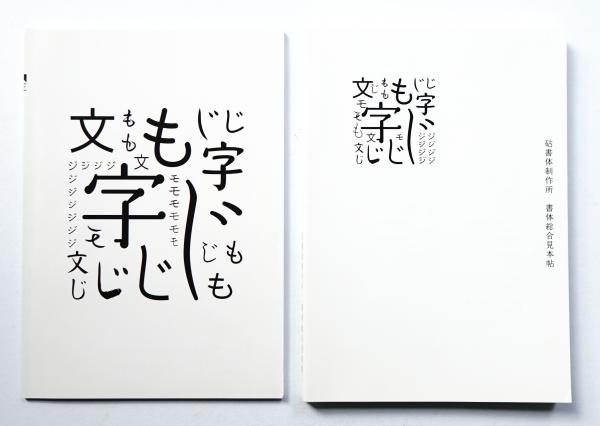 文
もも
も
じじ
字
文
ジジジジ
ジジジジジジ
字
モモモモモモ
じ
モ
じ
もも
も
文じ
じ
じ
文
じ
もも
も
じじ
字
モ
モモも
字
じ
ジジジジ
ジジジジ
モ
文
文じ
じ
じ
砧書体制作所 書体総合見本帖